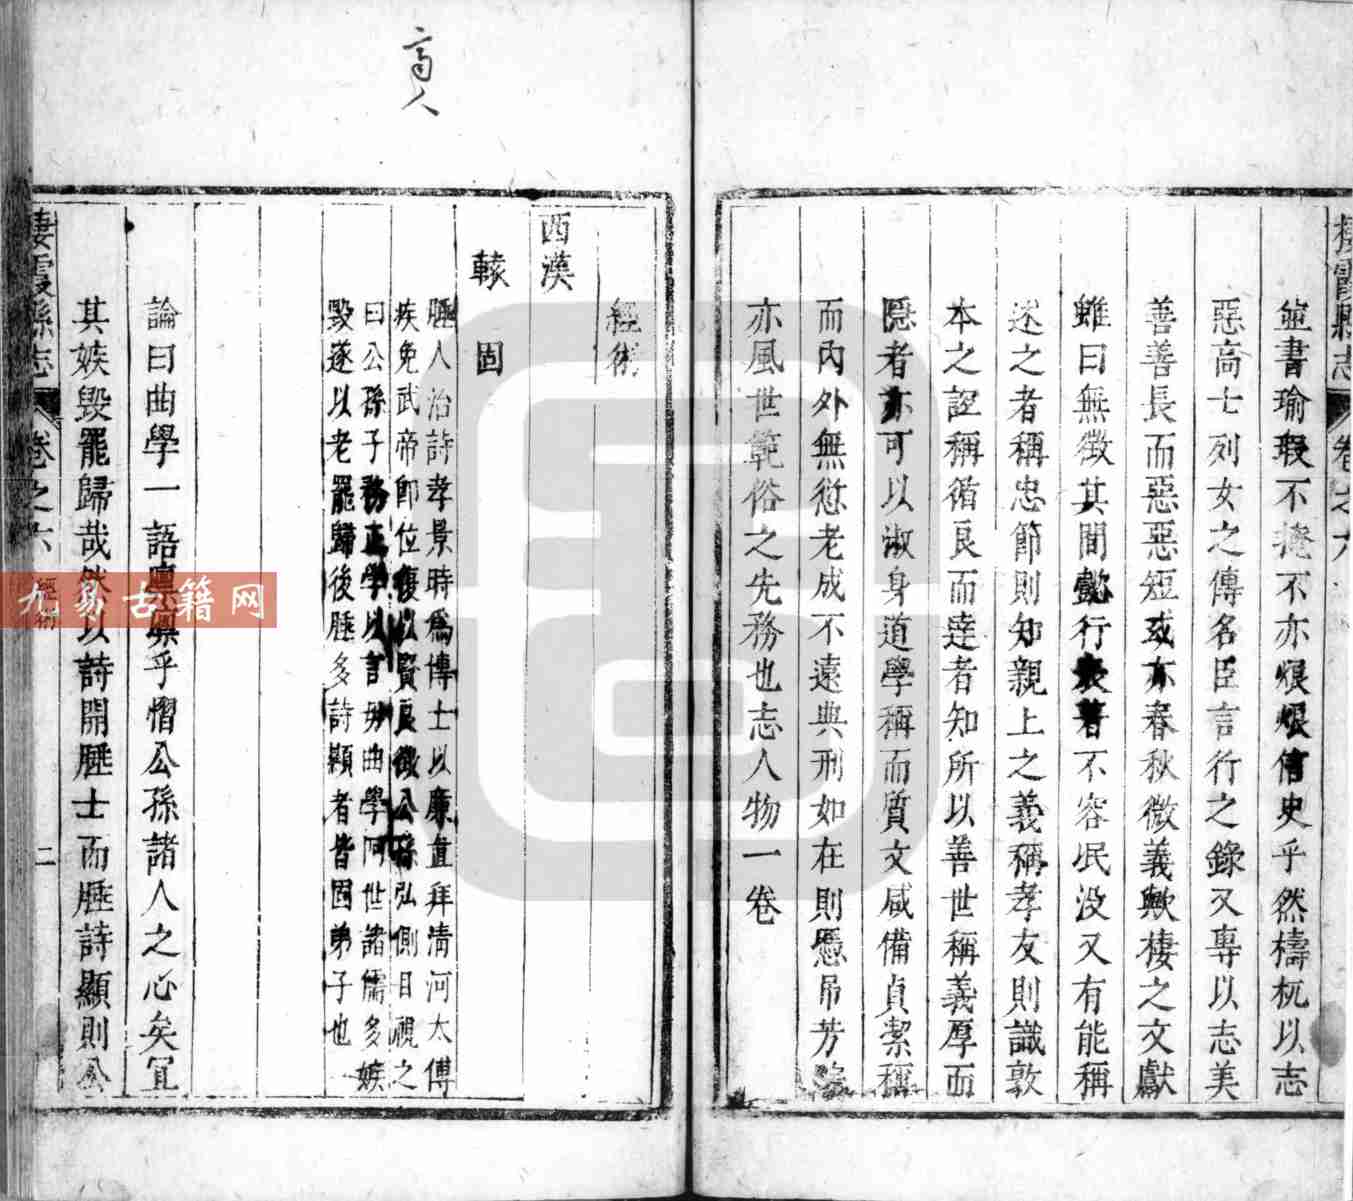 棲霞縣志
卷之六
並書瑜瑕不掩不亦焜燿信史乎然檮杌以志
惡高士列女之傳名臣言行之錄又專以志美
善善長而惡惡短或亦春秋微義歟棲之文獻
雖曰無徵其間懿行表著不容泯没又有能稱
述之者稱忠節則知親上之義稱孝友則識敦
本之誼稱循良而達者知所以善世稱義厚而
隠者亦可以淑身道學稱而質文咸備貞潔稱
而內外無愆老成不遠典刑如在則慿吊芳
亦風世範俗之先務也志人物一卷
經術
西漢
轅固
腄人治詩孝景時爲博士以廉直拜清河太傅
疾免武帝即位復以賢良徵公孫弘側目視之
曰公孫子務正學以言毋曲學阿世諸儒多嫉
毀遂以老罷歸後腄多詩顯者皆固弟子也
論曰曲學一語凛凛乎慴公孫諸人之心矣宜
其嫉毀罷歸哉然以詩開腄士而腄詩顯則公
棲霞縣志
卷之六
經術
二
九易古籍网